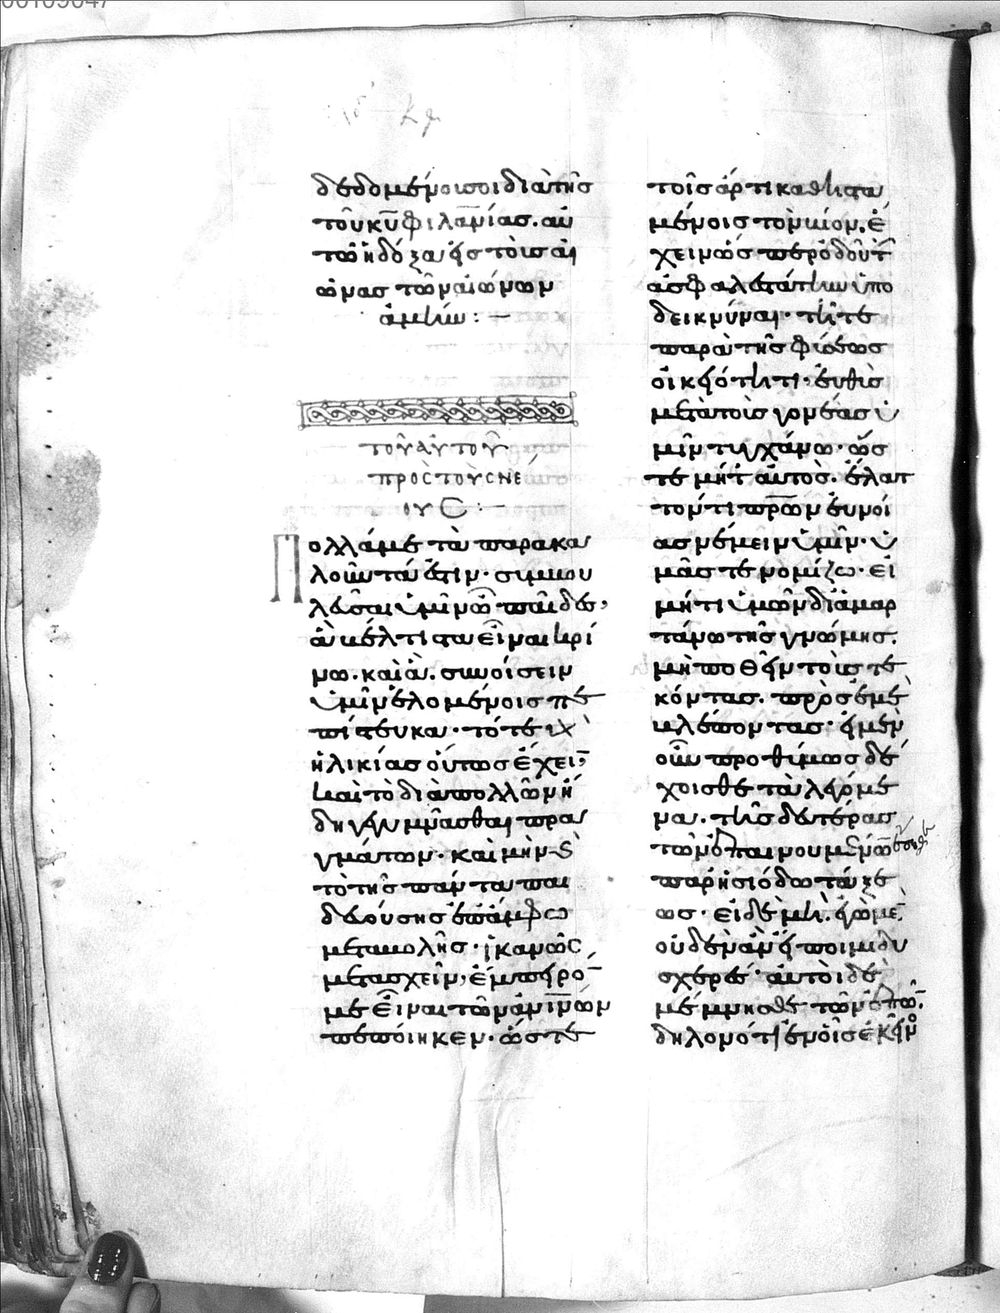 δεδομένοισοιδιὰτῆς
τοῦκῦφιλανίας. αὐ
τῶἡδόξαεἰςτοὺσαἰ
ῶνασ τῶναἰώνων
ἀμήν : —
τοῦ αὐτοῦ
πρὸς τοὺς νέ
ους : —
Πολλάμε τὰ παρακα
λοῦντάἐστιν· συμβου
λεῦσαιὑμῖνὦπαῖδες,
ἃβέλτισταεἶναικρί
νω. καὶἃ. συνοίσειν
ὑμῖνἑλομένοισπε
πίστευκα· τότε γὰρ
ἡλικίασοὕτωσἔχειν,
καὶτὸδιὰπολλῶνἤ
δηγεγυμνᾶσθαιπρα
γμάτων· καὶμὴνκαὶ
τὸτῆσπάντα παι
δευούσησἐπἄμφω
μεταβολῆσ· ἱκανῶς
μετασχεῖν, ἔμπειρόν
με εἶναιτῶνἀνθρωπίνων
πεποίηκεν· ὥστε
τοῖσἄρτικαθιστα
μένοισ τὸνβίον. ἔ
χεινὥσπερὁδοῦτὴν
ἀσφαλεστάτηνὑπο
δεικνύναι· τῆτε
παρὰτῆσφύσεωσ
οἰκειότητι· εὐθὺσ
μετὰτοὺσγονέασὑ
μῖντυγχάνω· ὥσ
τε μήτ αὐτὸσ. ἔλατ
τόντιπρων εὐνοί
ασνέμεινὑμῖν· ὑ
μᾶστενομίζω· εἰ
μήτιὑμῶνδιαμαρ
τάνωτῆσγνώμησ.
μὴποθεῖντοὺστε
κόντασ. πρὸσἐμὲ
βλέποντασ· εἰμὲν
οὖνπροθύμωσδέ
χοισθετὰλεγόμε
να. τῆςδευτέρασ
τῶνἐπαινουμένων
παρἡσιόδωτάξε
ως· εἰδὲμή. ἐγὼμὲν
οὐδὲνἂνεἴποιμιδυ
σχερέσ· αὐτοὶδὲ
μέμνησθετῶνἐπῶν.
δηλονότιἐνοἷσἐκεῖνος